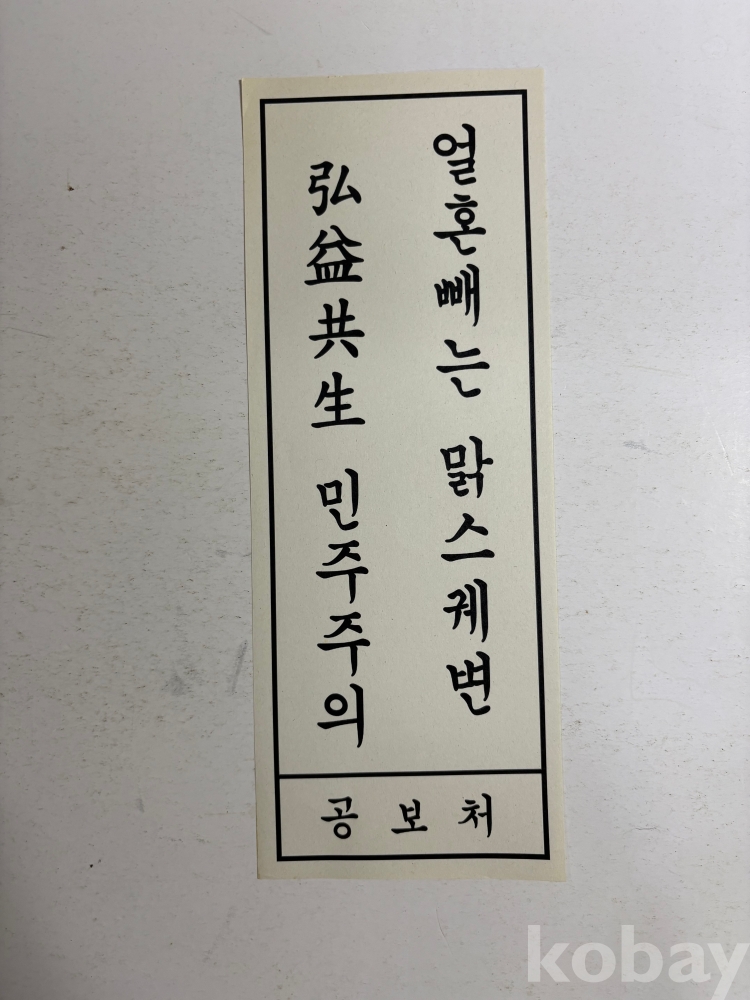 얼혼빼는 맑스궤변
弘益共生 민주주의
공보처
kobay